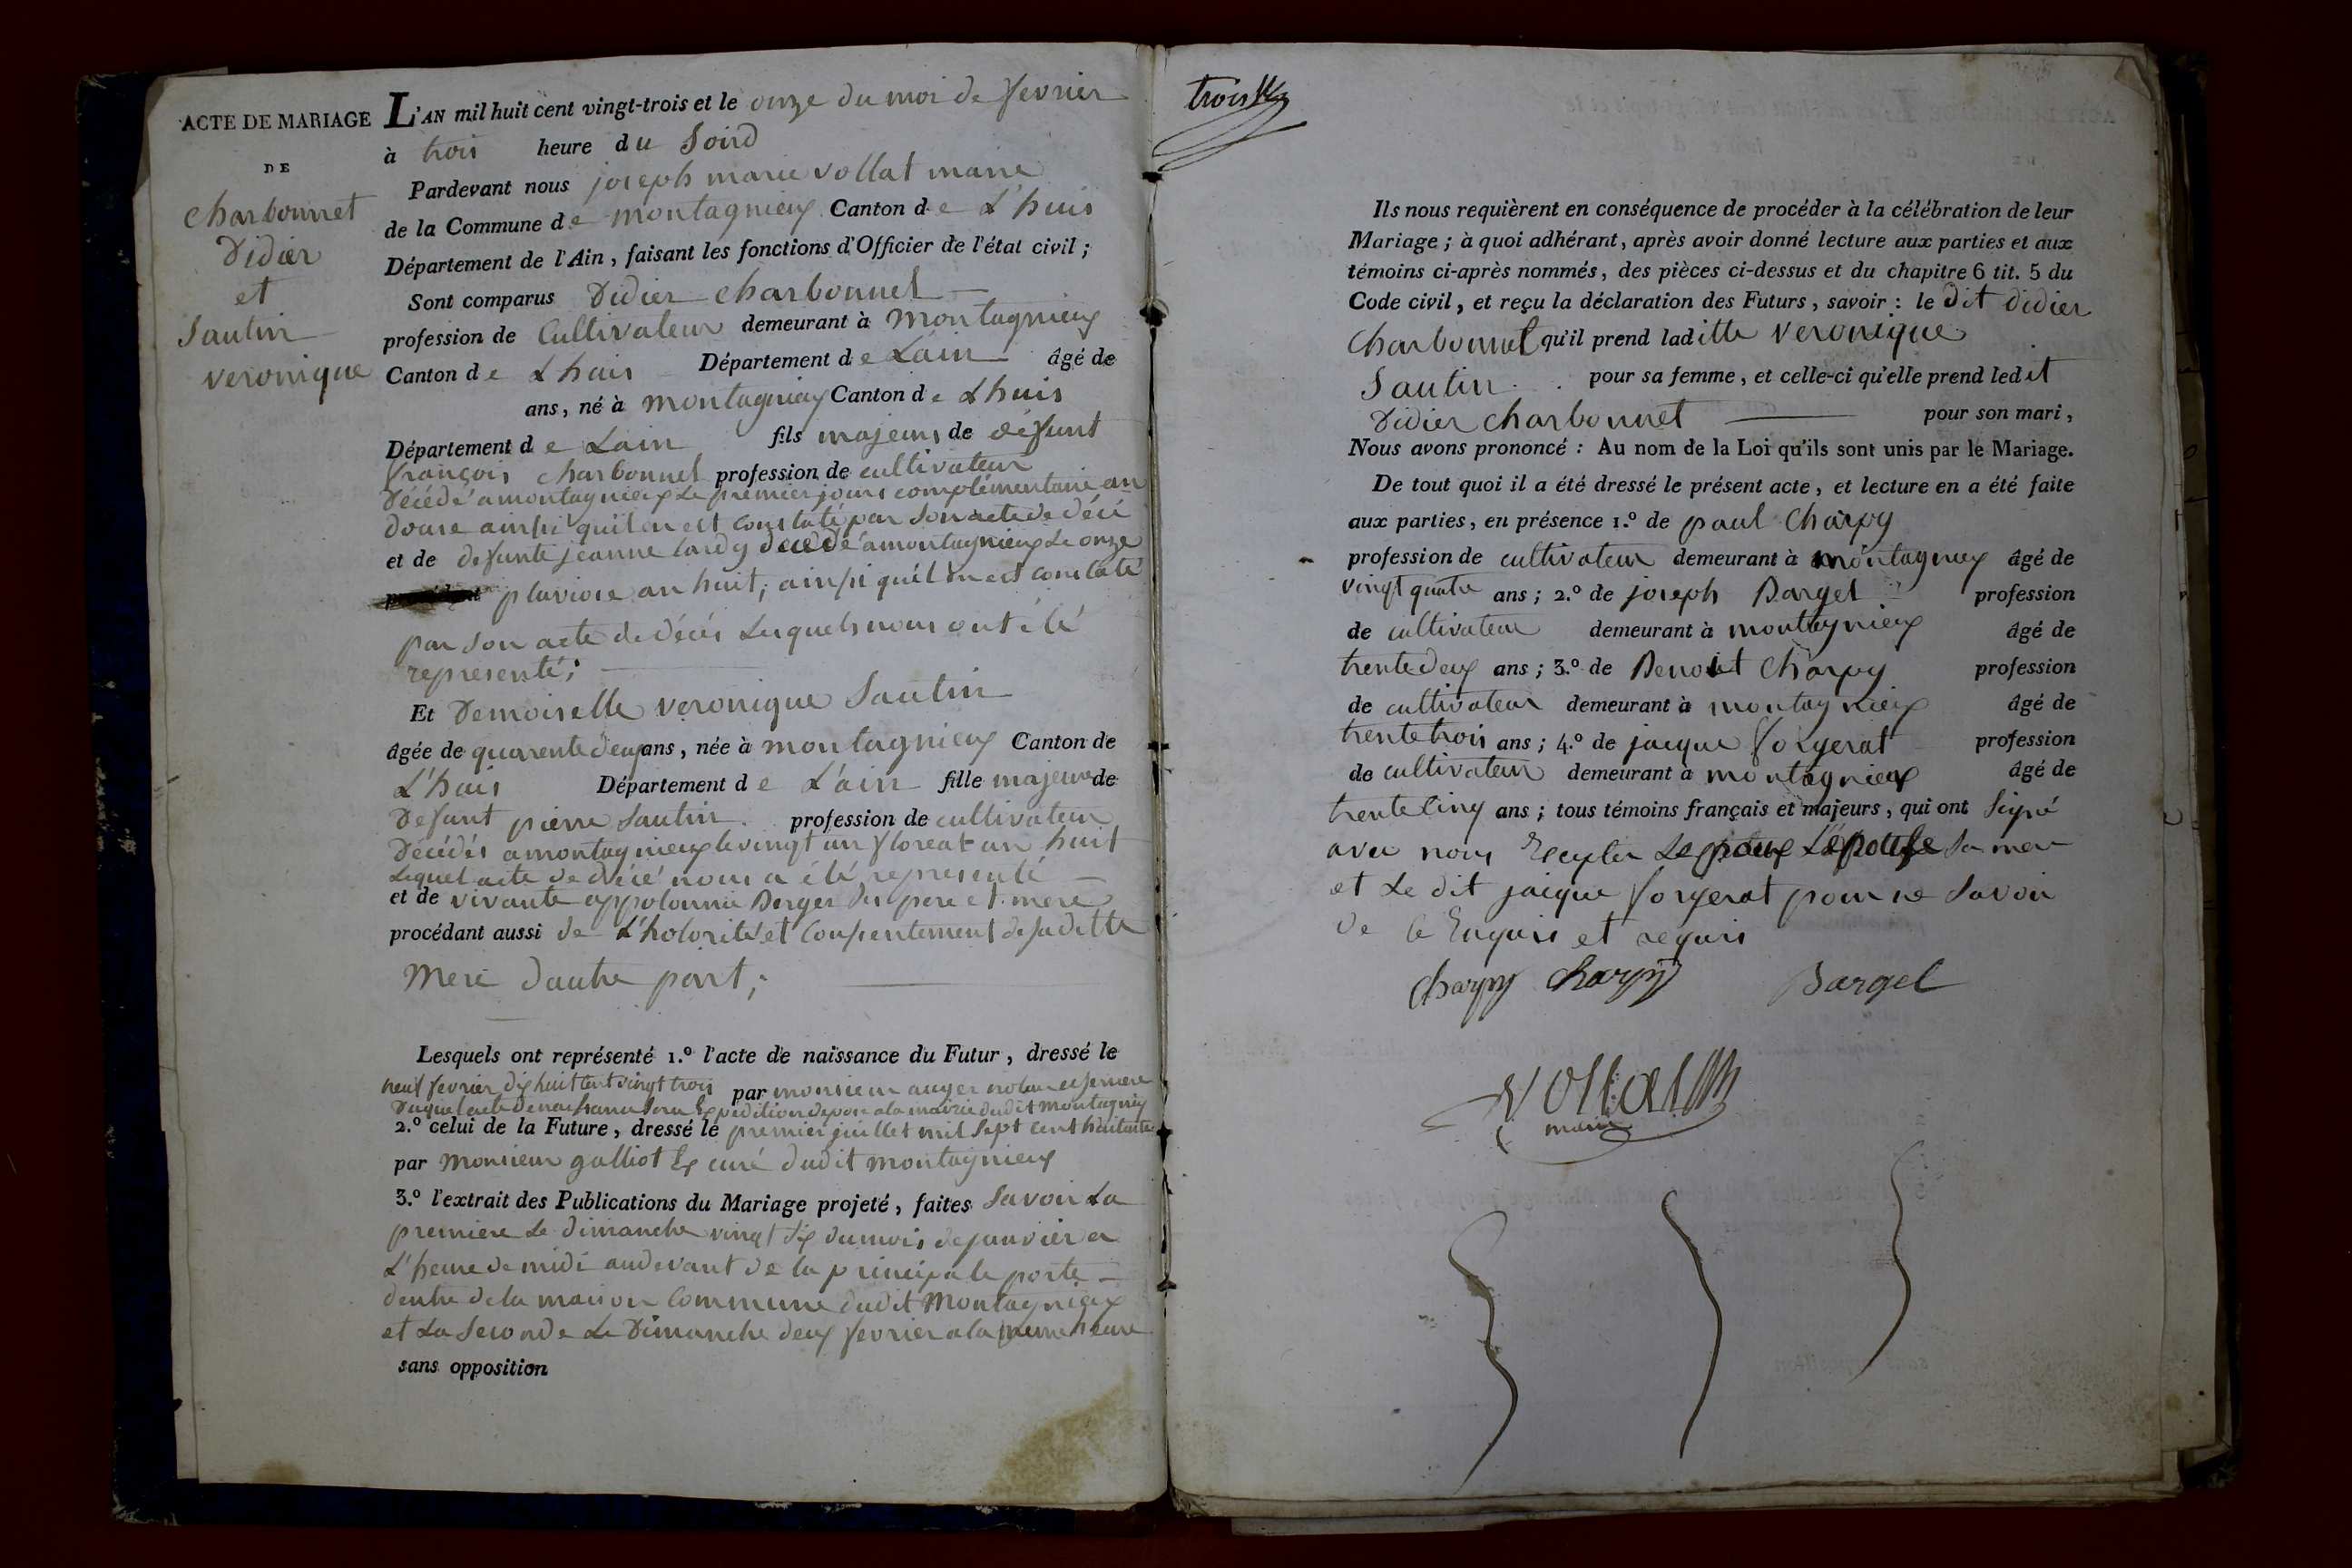 ACTE DE MARIAGE
DE
charbonnet
Didier
et
Sautin
veronique
L'AN mil huit cent vingt-trois et le onze du moi de fevrier
à trois heure du Soird
Pardevant nous joseph marie vollat maire
de la Commune de montagnieux Canton de L'huis
Département de l'Ain, faisant les fonctions d'Officier de l'état civil ;
Sont comparus Didier charbonnet
profession de Cultivateur demeurant à montagnieux
Canton de Lhuis Département de Lain âgé de
ans, né à montagnieux Canton de Lhuis
Département de Lain fils majeur de défunt
françois charbonnet profession de cultivateur
Décédé a montagnieux Le premier jours complémentaire an
douse ainsi quil en est constaté par Son acte de décè
et de defunte jeanne lardy decedé a montagnieux Le onze
pluviose an huit ; ainsi quil en est constaté
par Son acte de décès Lesquels nous ont été
representé ;
Et Demoiselle veronique Sautin
âgée de quarente deux ans, née à montagnieux Canton de
L'huis Département de L'ain fille majeure de
Defunt pierre Sautin profession de cultivateur
Décédés a montagnieux le vingt un floreat an huit
Lequel acte de décé nous a été representé
et de vivante appolonnie Berger Ses pere et mere
procédant aussi de L'hotorité et Consentement de sa ditte
Mere d'autre part ;
Lesquels ont représenté 1.º l'acte de naissance du Futur, dressé le
neuf fevrier dix huit cent vingt trois par monsieur auger
Duquel acte de naissance expedition a la mairie dudit montagnieux
2.º celui de la Future, dressé le premier juillet mil Sept cent huitante
par Monsieur galliot Ex curé dudit montagnieux
3.º l'extrait des Publications du Mariage projeté, faites Savoir La
premiere Le dimanche vingt Six du mois de janvier a
L'heure de midi au devant de la principale porte
dentre de la maison Commune dudit Montagnieux
et La Seconde Le Dimanche deux fevrier a la meme heure
sans opposition
trois
Ils nous requièrent en conséquence de procéder à la célébration de leur
Mariage ; à quoi adhérant, après avoir donné lecture aux parties et aux
témoins ci-après nommés, des pièces ci-dessus et du chapitre 6 tit. 5 du
Code civil, et reçu la déclaration des Futurs, savoir : le Dit didier
Charbonnet qu'il prend laditte veronique
Sautin pour sa femme, et celle-ci qu'elle prend ledit
Didier charbonnet pour son mari,
Nous avons prononcé : Au nom de la Loi qu'ils sont unis par le Mariage.
De tout quoi il a été dressé le présent acte, et lecture en a été faite
aux parties, en présence 1.º de paul Charpy
profession de cultivateur demeurant à montagnieux âgé de
vingt quatre ans ; 2.º de joseph Bargel profession
de cultivateur demeurant à montagnieux âgé de
trente deux ans ; 3.º de Benoit Charpy profession
de cultivateur demeurant à montagnieux âgé de
trente trois ans ; 4.º de jacque forgerat profession
de cultivateur demeurant à montagnieux âgé de
trente Cinq ans ; tous témoins français et majeurs, qui ont Signé
avec nous Excepter Lepoux L'épouse Sa mere
et Le dit jacque forgerat pour ne Savoir
de ce Enquis et requis
Charpy Charpy Bargel
Vollat
maire